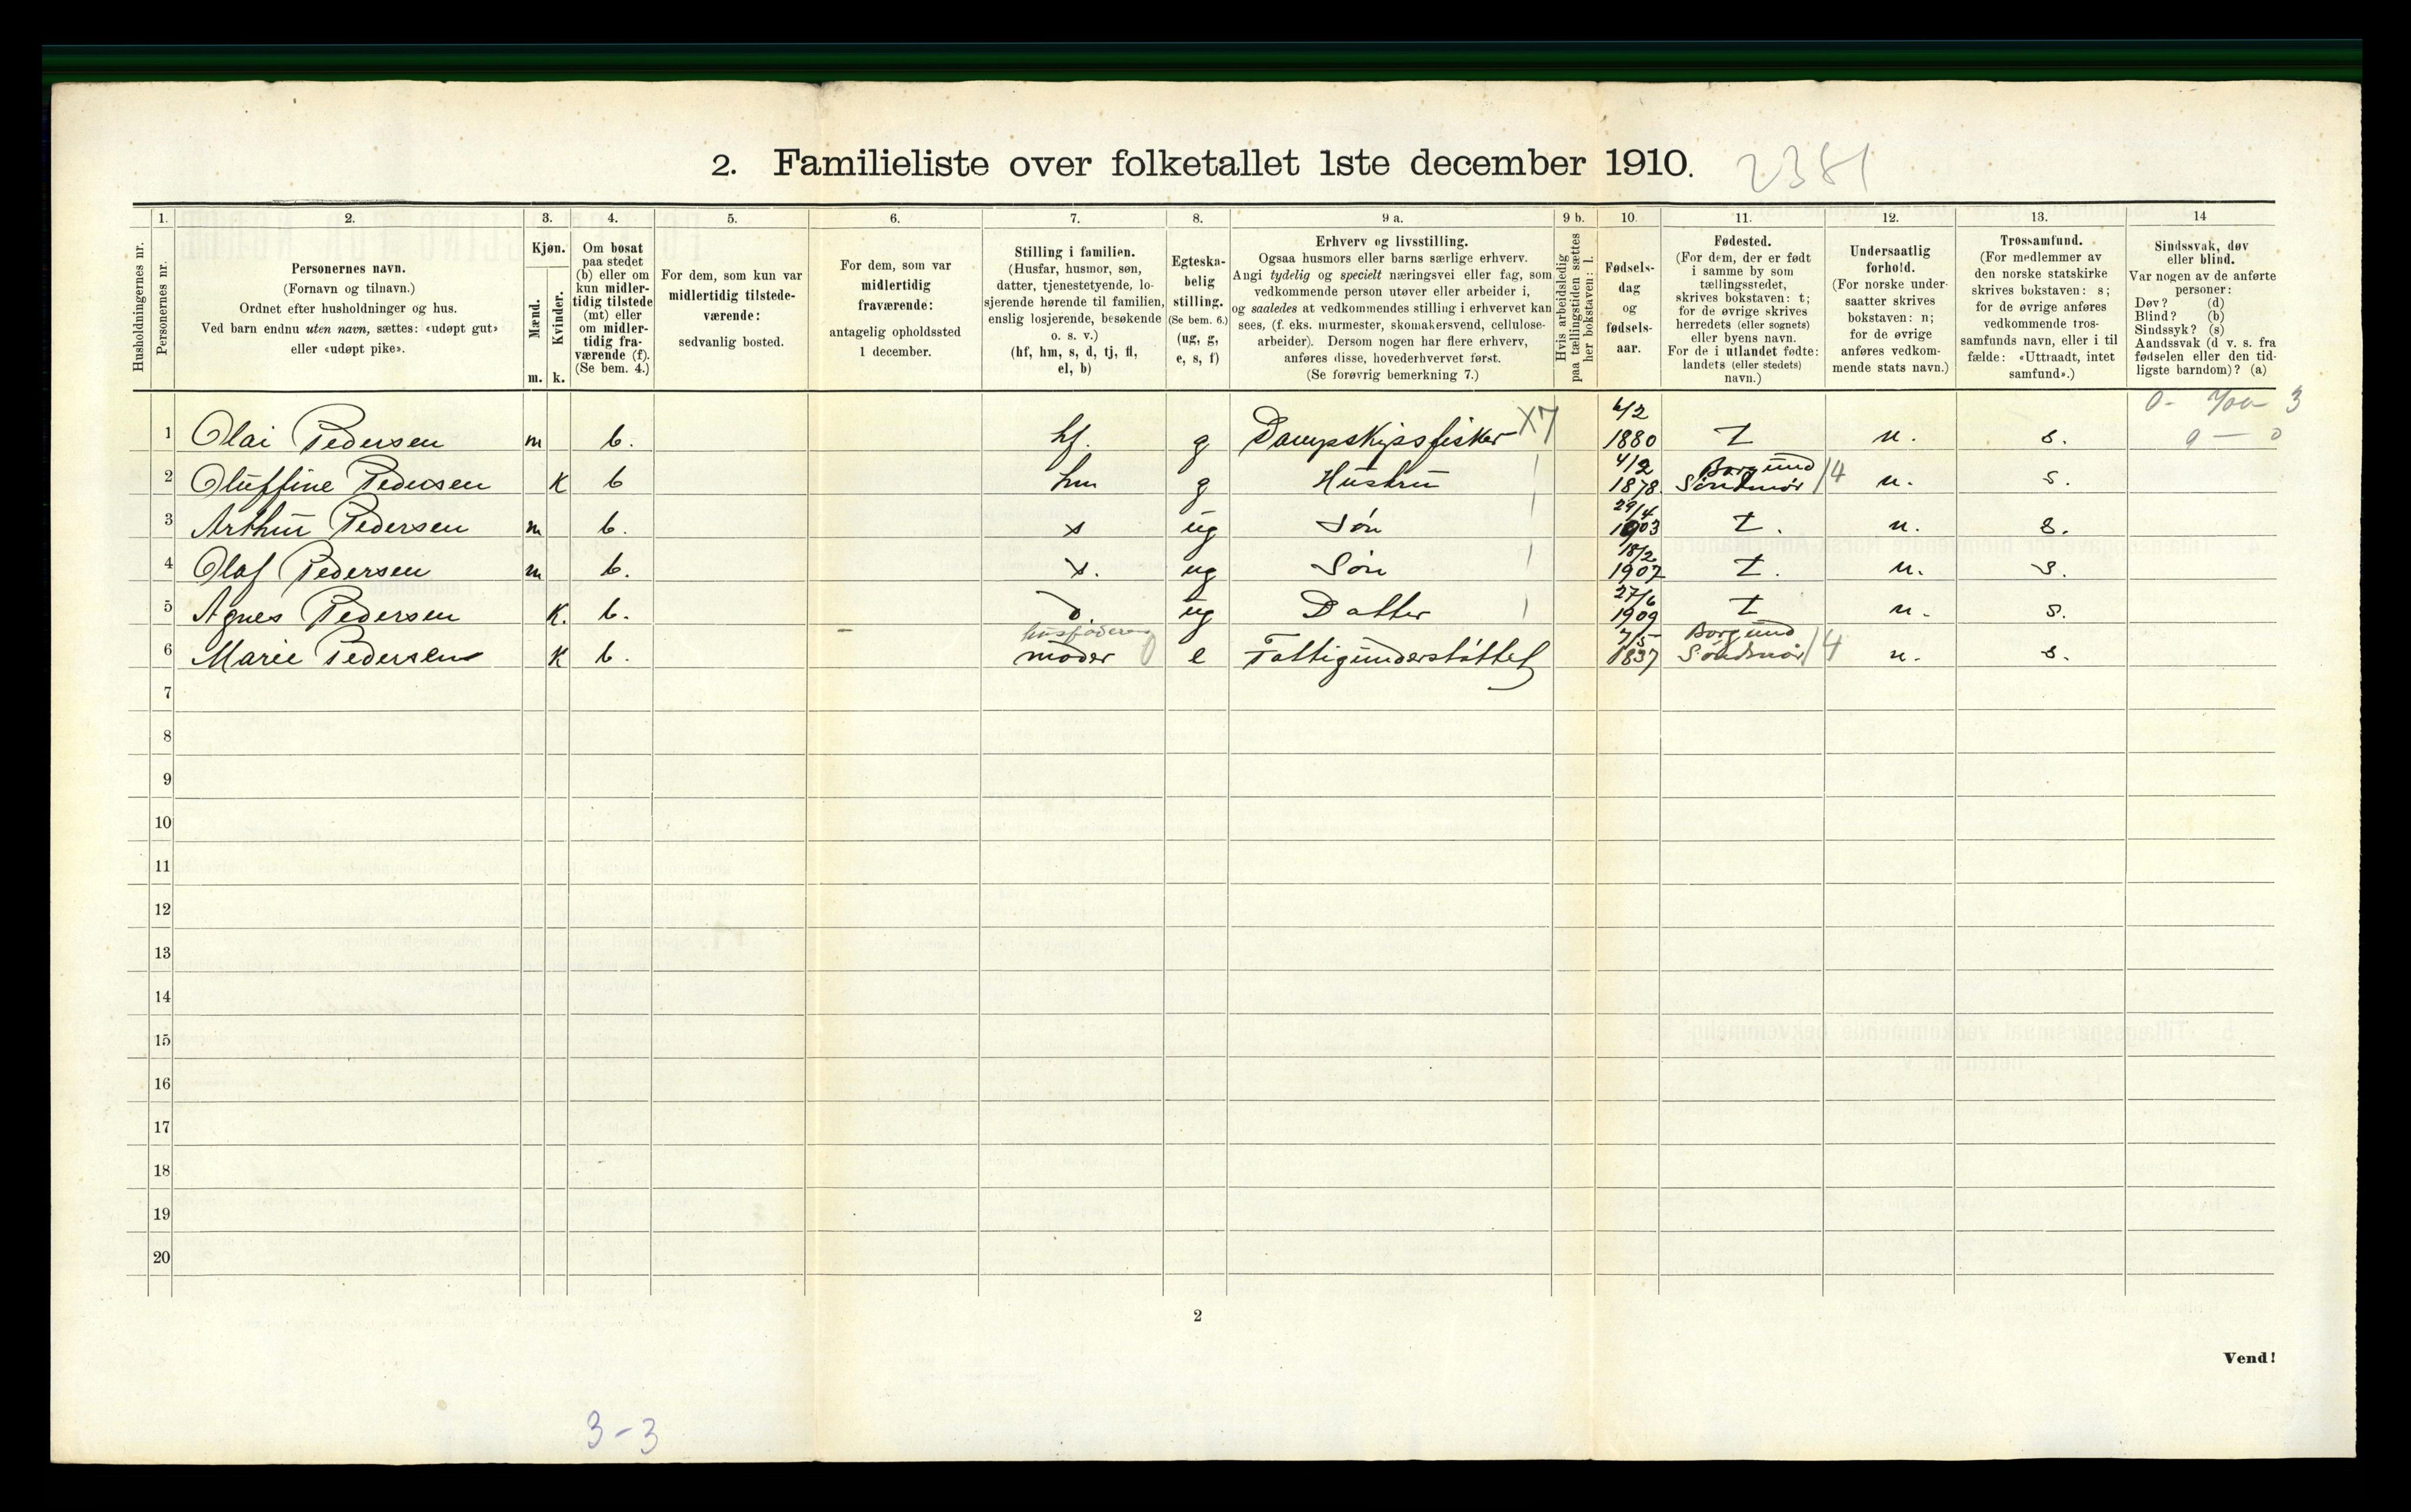 2. Familieliste over folketallet 1ste december 1910. 2381
1. 2. 3. 4. 5. 6. 7. 8. 9 a. 9 b. 10. 11. 12. 13. 14
Husholdningernes nr.
Personernes nr.
Personernes navn.
(Fornavn og tilnavn.)
Ordnet efter husholdninger og hus.
Ved barn endnu uten navn, sættes: «udøpt gut»
eller «udøpt pike».
Kjøn.
Mænd.
Kvinder.
m. k.
Om bosat
paa stedet
(b) eller om
kun midler-
tidig tilstede
(mt) eller
om midler-
tidig fra-
værende (f).
(Se bem. 4.)
For dem, som kun var
midlertidig tilstede-
værende:
sedvanlig bosted.
For dem, som var
midlertidig
fraværende:
antagelig opholdssted
1 december.
Stilling i familien.
(Husfar, husmor, søn,
datter, tjenestetyende, lo-
sjerende hørende til familien,
enslig losjerende, besøkende
o. s. v.)
(hf, hm, s, d, tj, fl,
el, b)
Egteska-
belig
stilling.
(Se bem. 6.)
(ug, g,
e, s, f)
Erhverv og livsstilling.
Ogsaa husmors eller barns særlige erhverv.
Angi tydelig og specielt næringsvei eller fag, som
vedkommende person utøver eller arbeider i,
og saaledes at vedkommendes stilling i erhvervet kan
sees, (f. eks. murmester, skomakersvend, cellulose-
arbeider). Dersom nogen har flere erhverv,
anføres disse, hovederhvervet først.
(Se forøvrig bemerkning 7.)
Hvis arbeidsledig
paa tællingstiden sættes
her bokstaven: l.
Fødsels-
dag
og
fødsels-
aar.
Fødested.
(For dem, der er født
i samme by som
tællingsstedet,
skrives bokstaven: t;
for de øvrige skrives
herredets (eller sognets)
eller byens navn.
For de i utlandet fødte:
landets (eller stedets)
navn.)
Undersaatlig
forhold.
(For norske under-
saatter skrives
bokstaven: n;
for de øvrige
anføres vedkom-
mende stats navn.)
Trossamfund.
(For medlemmer av
den norske statskirke
skrives bokstaven: s;
for de øvrige anføres
vedkommende tros-
samfunds navn, eller i til
fælde: «Uttraadt, intet
samfund».)
Sindssvak, døv
eller blind.
Var nogen av de anførte
personer:
Døv? (d)
Blind? (b)
Sindssyk? (s)
Aandssvak (d v. s. fra
fødselen eller den tid-
ligste barndom)? (a)
1 Olai Pedersen m b. hf. g Dampskipsfisker X7 6/2 1880 t n. s.
2 Oluffine Pedersen K b hm g Hustru 4/2 1878 Borgund Söndmör 14 n. s.
3 Arthur Pedersen m b. s ug Sön 29/4 1903 t. n. s.
4 Olaf Pedersen m b. s. ug Sön 18/2 1907 t. n. s.
5 Agnes Pedersen K. b. d. ug Datter 27/6 1909 t n. s.
6 Marie Pedersen K b. husfaderens moder 0 e Fattigunderstöttet 7/5 1837 Borgund Söndmör 14 n. s.
7
8
9
10
11
12
13
14
15
16
17
18
19
20
2
Vend!
3-3